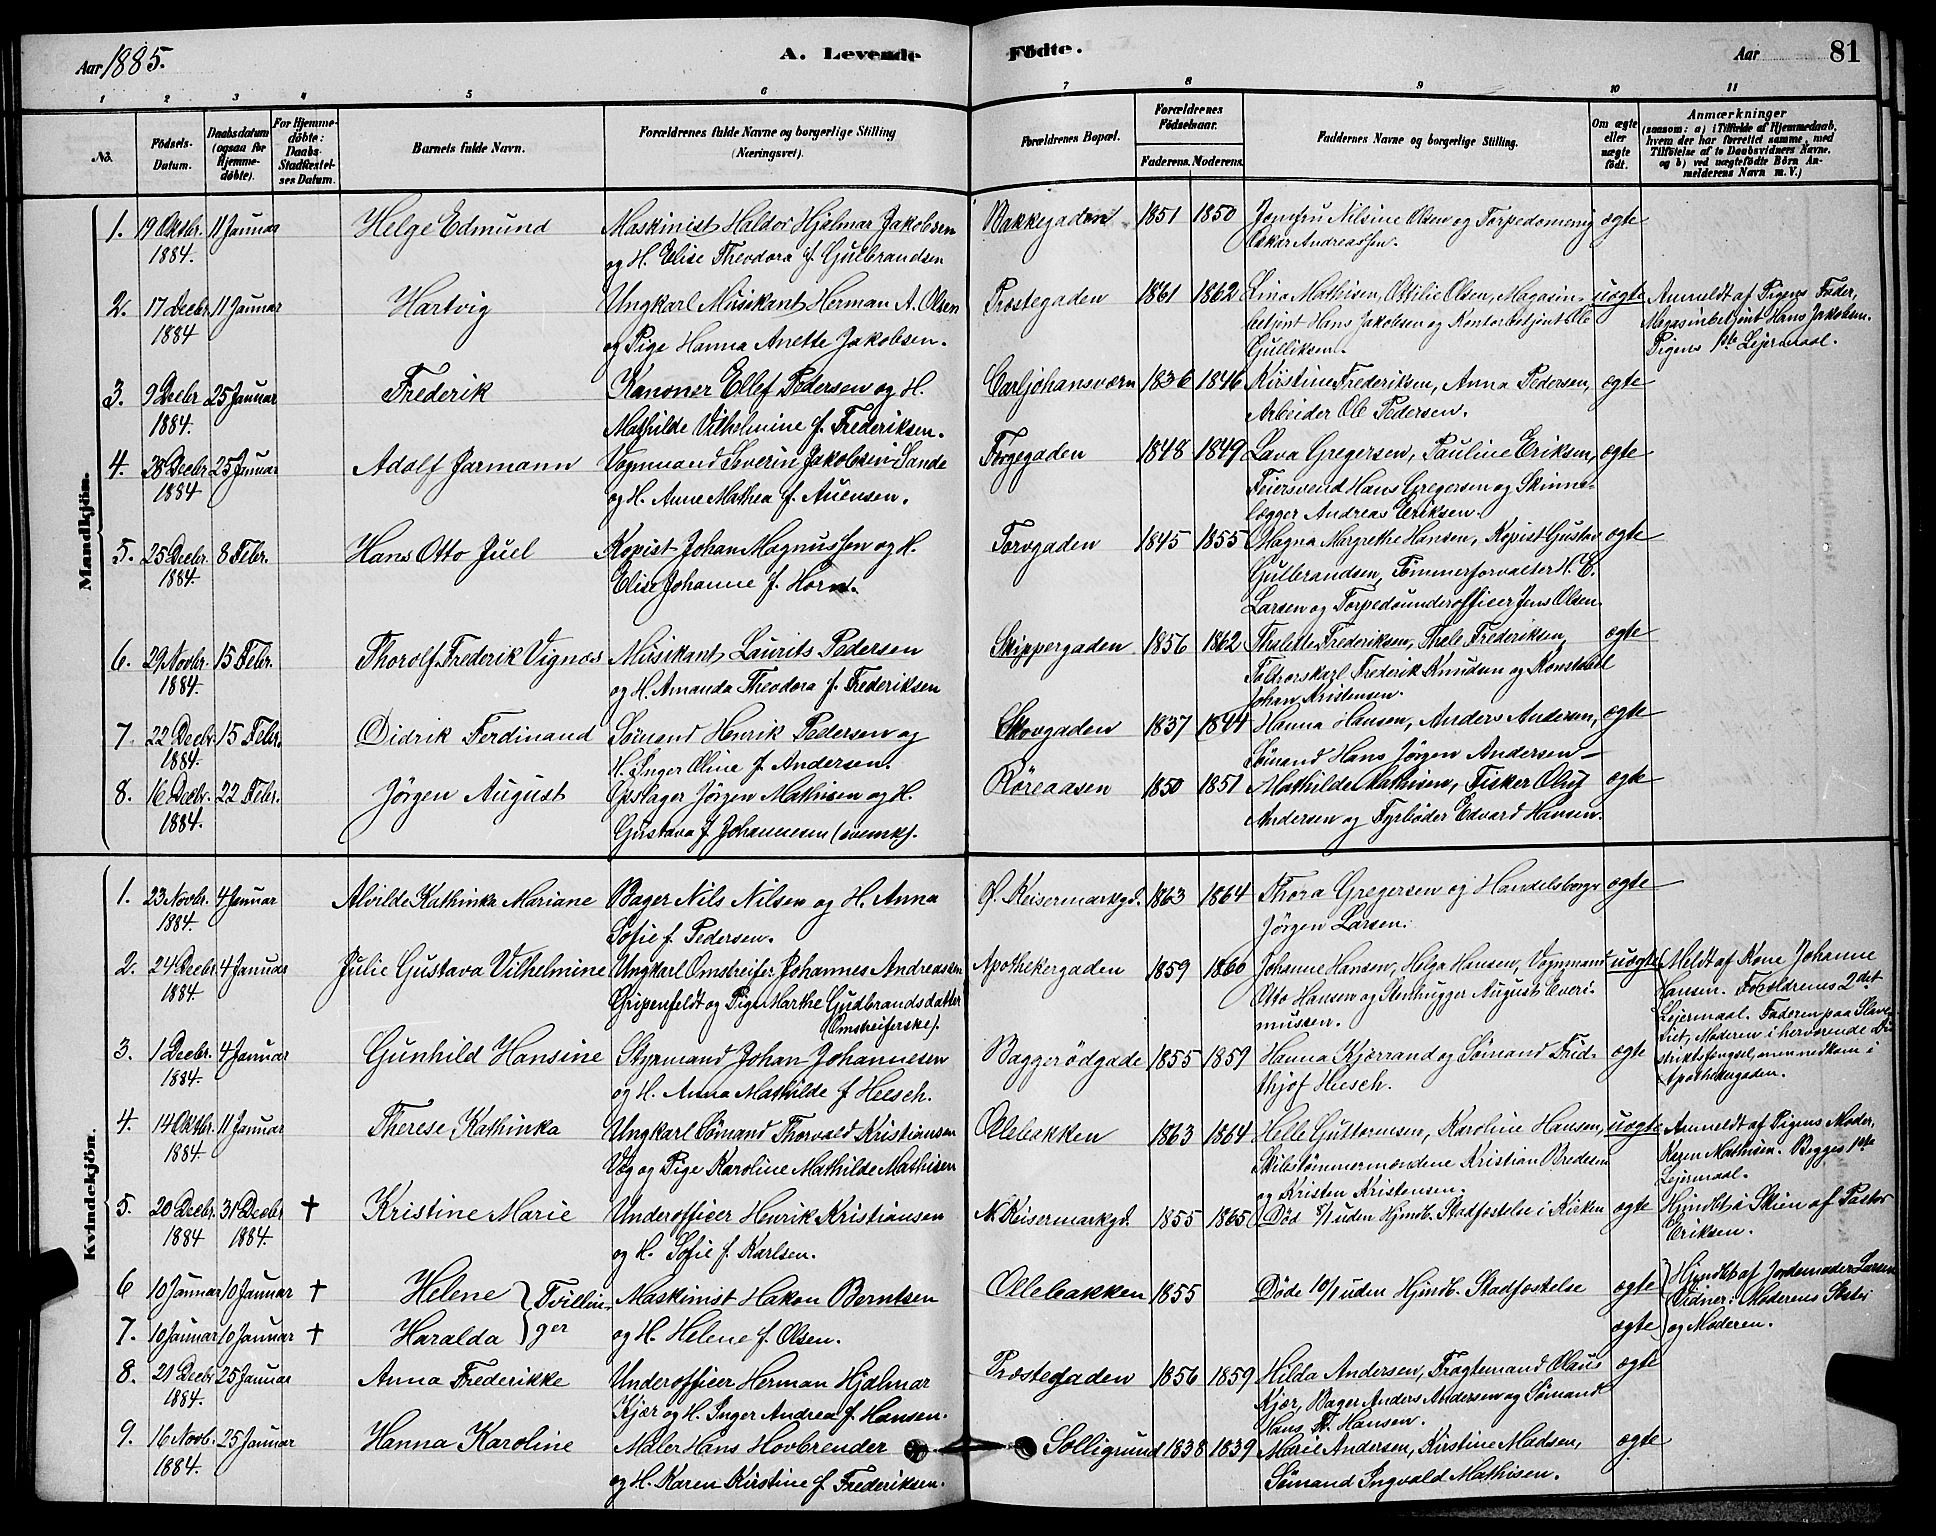 Aar 1885.
A. Levende
Födte.
Aar
81
1 2 3 4 5 6 7 8 9 10 11
No.
Födsels-
Datum.
Daabsdatum
(ogsaa for
Hjemme-
döbte).
For Hjemme-
döbte:
Daabs-
Stadfæstel-
ses Datum.
Barnets fulde Navn.
Forældrenes fulde Navne og borgerlige Stilling
(Næringsvei).
Forældrenes Bopæl.
Forældrenes
Födselsaar.
Faderens. Moderens.
Faddernes Navne og borgerlige Stilling.
Om ægte
eller
uægte
födt.
Anmærkninger
(saasom: a) i Tilfælde af Hjemmedaab,
hvem der har forrettet samme, med
Tilföielse af to Daabsvidners Navne,
og b) ved uægtefödte Börn An-
melderens Navn m. V.)
Mandkjön.
1. 19 Oktbr. 11 Januar Helge Edmund Maskinist Haldor Hjalmar Jakobsen Bakkegaden 1851 1850 Jomfru Nilsine Olsen og Torpedomenig ægte
1884. og H. Elise Theodora f. Gulbrandsen Oskar Andreassen.
2. 17 Decbr. 11 Januar Hartvig Ungkarl Musikant Herman A. Olsen Præstegaden 1861 1862 Lina Mathisen, Ottilie Olsen, Magasin- uægte Anmeldt af Pigens Fader,
1884 og Pige Hanna Anette Jakobsen. betjent Hans Jakobsen og Kontorbetjent Ole Magasinbetjent Hans Jakobsen.
Gulliksen. Pigens 1ste Lejermaal.
3. 9 Decbr 25 Januar Frederik Kanoner Ellef Pedersen og H. Carljohansværn 1836 1846 Kirstine Frederiksen, Anna Pedersen, ægte
1884. Mathilde Vilhelmine f. Frederiksen. Arbeider Ole Pedersen.
4. 28 Decbr 25 Januar Adolf Jarmann Vognmand Severin Jakobsen Sande Torvgaden 1848 1849 Lava Gregersen, Pauline Eriksen, ægte
1884 og H. Anne Mathea f. Auensen. Feiersvend Hans Gregersen og Skinne-
lægger Andreas Eriksen.
5. 25 Decbr. 8 Febr. Hans Otto Juel Kopist Johan Magnussen og H. Torvgaden 1845 1855 Magna Margrethe Hansen, Kopist Gustav ægte
1884. Elise Johanne f. Horn. Gulbrandsen, Tømmerforvalter H. C.
Larsen og Torpedounderofficer Jens Olsen.
6. 29 Novbr. 15 Febr. Thorolf Frederik Vignæs Musikant Laurits Pedersen Skippergaden 1856 1862 Thalette Frederiksen, Thale Frederiksen, ægte
1884. og H. Amanda Theodora f. Frederiksen Toldrorskarl Frederik Knudsen og Konstabel
Johan Kristensen.
7. 22 Decbr. 15 Febr. Didrik Ferdinand Sømand Henrik Pedersen og Skovgaden 1837 1844 Hanna Hansen, Anders Andersen, ægte
1884. H. Inger Oline f. Andersen. Sømand Hans Jørgen Andersen
8. 16 Decbr. 22 Febr. Jörgen August Opslager Jørgen Mathisen og H. Røreaasen 1850 1851 Mathilde Mathisen, Fisker Oluf ægte
1884. Gustava f. Johannesen (svensk). Andersen og Fyrbøder Edvard Hansen.
Kvindekjön.
1. 23 Novbr. 4 Januar Alvilde Kathinka Mariane Bager Nils Nilsen og H. Anna Ø. Keisermarkgd. 1863 1864 Thora Gregersen og Handelsborger ægte
1884. Sofie f. Pedersen. Jörgen Larsen.
2. 24 Decbr. 4 Januar Julie Gustava Vilhelmine Ungkarl Omstreifer Johannes Andreassen Apothekergaden 1859 1860 Johanne Hansen, Helga Hansen, Vognmand uægte Meldt af Kone Johanne
1884. Gripenfeldt og Pige Marthe Gudbrandsdatter Otto Hansen og Stenhugger August Everi- Hansen. Forældrenes 2det
(Omstreiferske). mussen. Lejermaal. Faderen paa Slave-
3. 1 Decbr. 4 Januar Gunhild Hansine Styrmand Johan Johannesen Baggerödgade 1855 1859 Hanna Kjærrand og Sømand Frid- ægte riet, Moderen i herværende Di-
1884. og H. Anna Mathilde f. Heesch. thjof Heesch. striktsfængsel, men nedkom i
Apothekergaden.
4. 14 Oktbr. 11 Januar Therese Kathinka Ungkarl Sømand Thorvald Kristiansen Ollebakken 1863 1864 Helle Guttormsen, Karoline Hansen, uægte Anmeldt af Pigens Moder,
1884. Væg og Pige Karoline Mathilde Mathisen Skibstømmermændene Kristian Bredesen Karen Mathisen. Begges 1ste
og Kristen Kristensen. Lejermaal.
5. 20 Decbr. 31 Decbr † Kristine Marie Underofficer Henrik Kristiansen N. Keisermarkgd. 1855 1865 Død 8/1 uden Hjmdb. Stadfæstelse i Kirken ægte Hjmdbt. i Skien af Pastor
1884 1884. og H. Sofie f. Karlsen. Eriksen.
6 10 Januar 10 Januar † Helene Tvillin- Maskinist Hakon Berntsen Ollebakken 1855 Døde 10/1 uden Hjmdb. Stadfæstelse ægte Hjmdbt. af Jordemoder Larsen
7. 10 Januar 10 Januar † Haralda ger og H. Helene f. Olsen. ægte Vidner: Moderens Søster
og Moderen.
8. 21 Decbr 25 Januar Anna Frederikke Underofficer Herman Hjalmar Præstegaden 1856 1859 Hilda Andersen, Fragtemand Olaus ægte
1884. Kjær og H. Inger Andrea f. Hansen. Kjær, Bager Anders Andersen og Sømand
Hans Fr. Hansen.
9. 16 Novb. 25 Januar Hanna Karoline Maler Hans Hovbrender Solligrund 1838 1839 Marie Andersen, Kirstine Madsen, ægte
1884. og H. Karen Kirstine f. Frederiksen. Sømand Ingvald Mathisen.